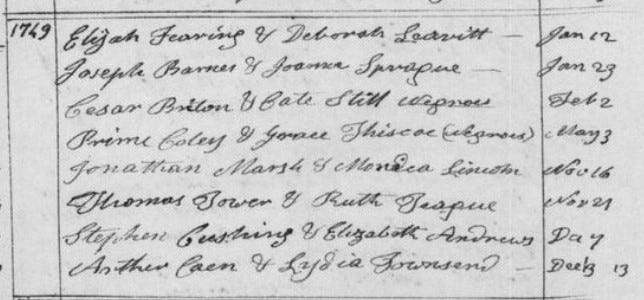 1749 Elijah Fearing & Deborah Leavitt — Jan 12
Joseph Barnes & Joanna Sprague — Jan 23
Cesar Briton & Cate Still Negroes Feb 2
Prime Coley & Grace Thiscoe (Negroes) May 3
Jonathan Marsh & Mondca Lincoln Nov 16
Thomas Tower & Ruth Teague Nov 21
Stephen Cushing & Elizabeth Andrews Da 7
Arther Caen & Lydia Townsend — 13